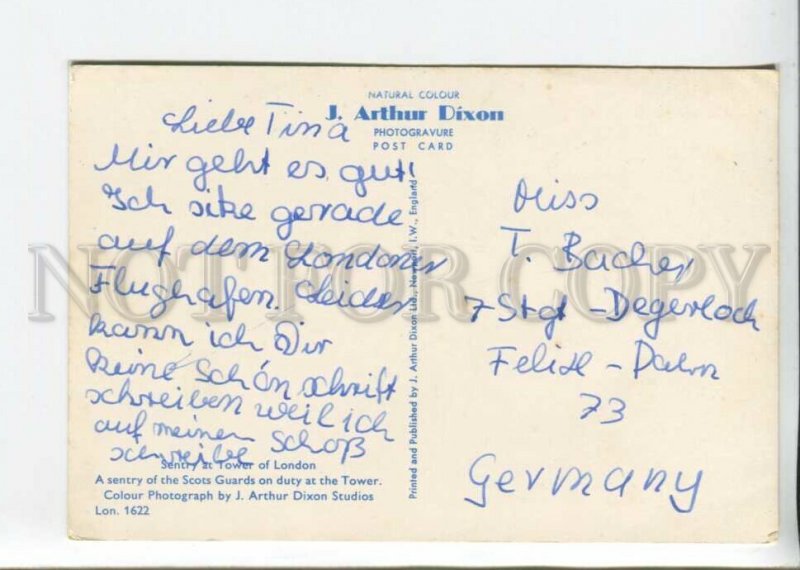 NATURAL COLOUR
J. Arthur Dixon
PHOTOGRAVURE
POST CARD
Liebe Tina
Mir geht es gut!
Ich sitze gerade
auf dem Londoner
Flughafen. Leider
kann ich Dir
keine Schönschrift
schreiben weil ich
auf meinen Schoß
schreibe
Sentry at Tower of London
A sentry of the Scots Guards on duty at the Tower.
Colour Photograph by J. Arthur Dixon Studios
Lon. 1622
Printed and Published by J. Arthur Dixon Ltd., Newport, I.W., England
Miss
T. Bacher
7 Stgt - Degerloch
Felix - Dahn
73
Germany
NOT FOR COPY